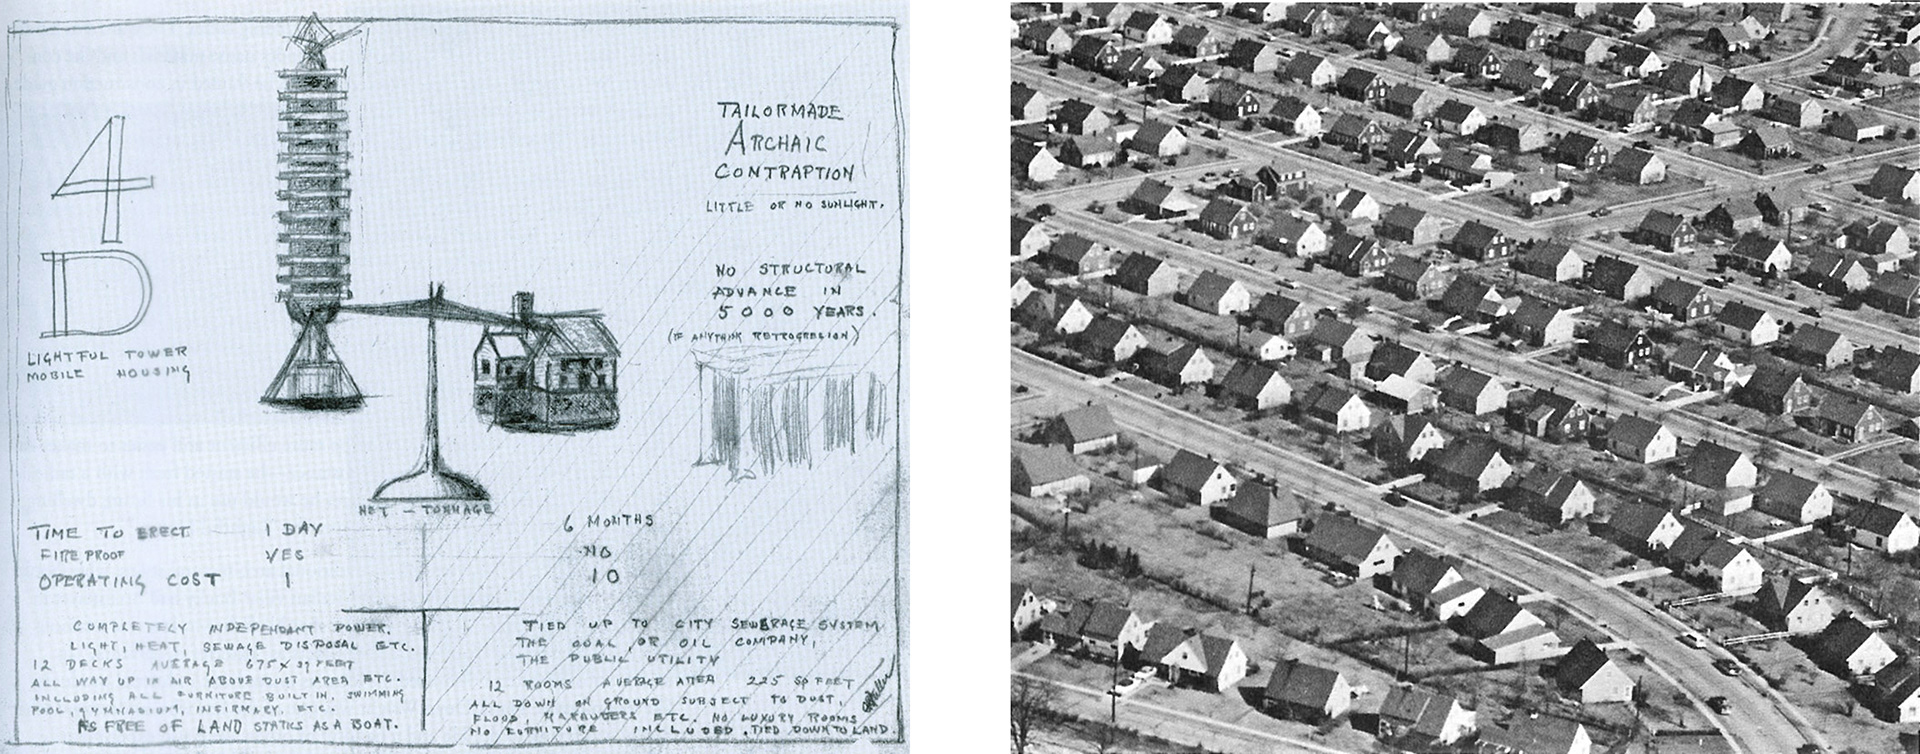 4
D
LIGHTFUL TOWER
MOBILE HOUSING
TAILORMADE
ARCHAIC
CONTRAPTION
LITTLE OR NO SUNLIGHT.
NO STRUCTURAL
ADVANCE IN
5000 YEARS.
(IF ANYTHING RETROGRESSION)
NET - TONNAGE
TIME TO ERECT 1 DAY 6 MONTHS
FIREPROOF YES NO
OPERATING COST 1 10
COMPLETELY INDEPENDANT POWER.
LIGHT, HEAT, SEWAGE DISPOSAL ETC.
12 DECKS AVERAGE 675 X SQ FEET
ALL WAY UP IN AIR ABOVE DUST AREA ETC.
INCLUDING ALL FURNITURE BUILT IN. SWIMMING
POOL, GYMNASIUM, INFIRMARY, ETC.
AS FREE OF LAND STATICS AS A BOAT.
TIED UP TO CITY SEWERAGE SYSTEM
THE COAL OR OIL COMPANY,
THE PUBLIC UTILITY
12 ROOMS AVERAGE AREA 225 SQ FEET
ALL DOWN ON GROUND SUBJECT TO DUST,
FLOOD, MARAUDERS ETC. NO LUXURY ROOMS
NO FURNITURE INCLUDED. TIED DOWN TO LAND.